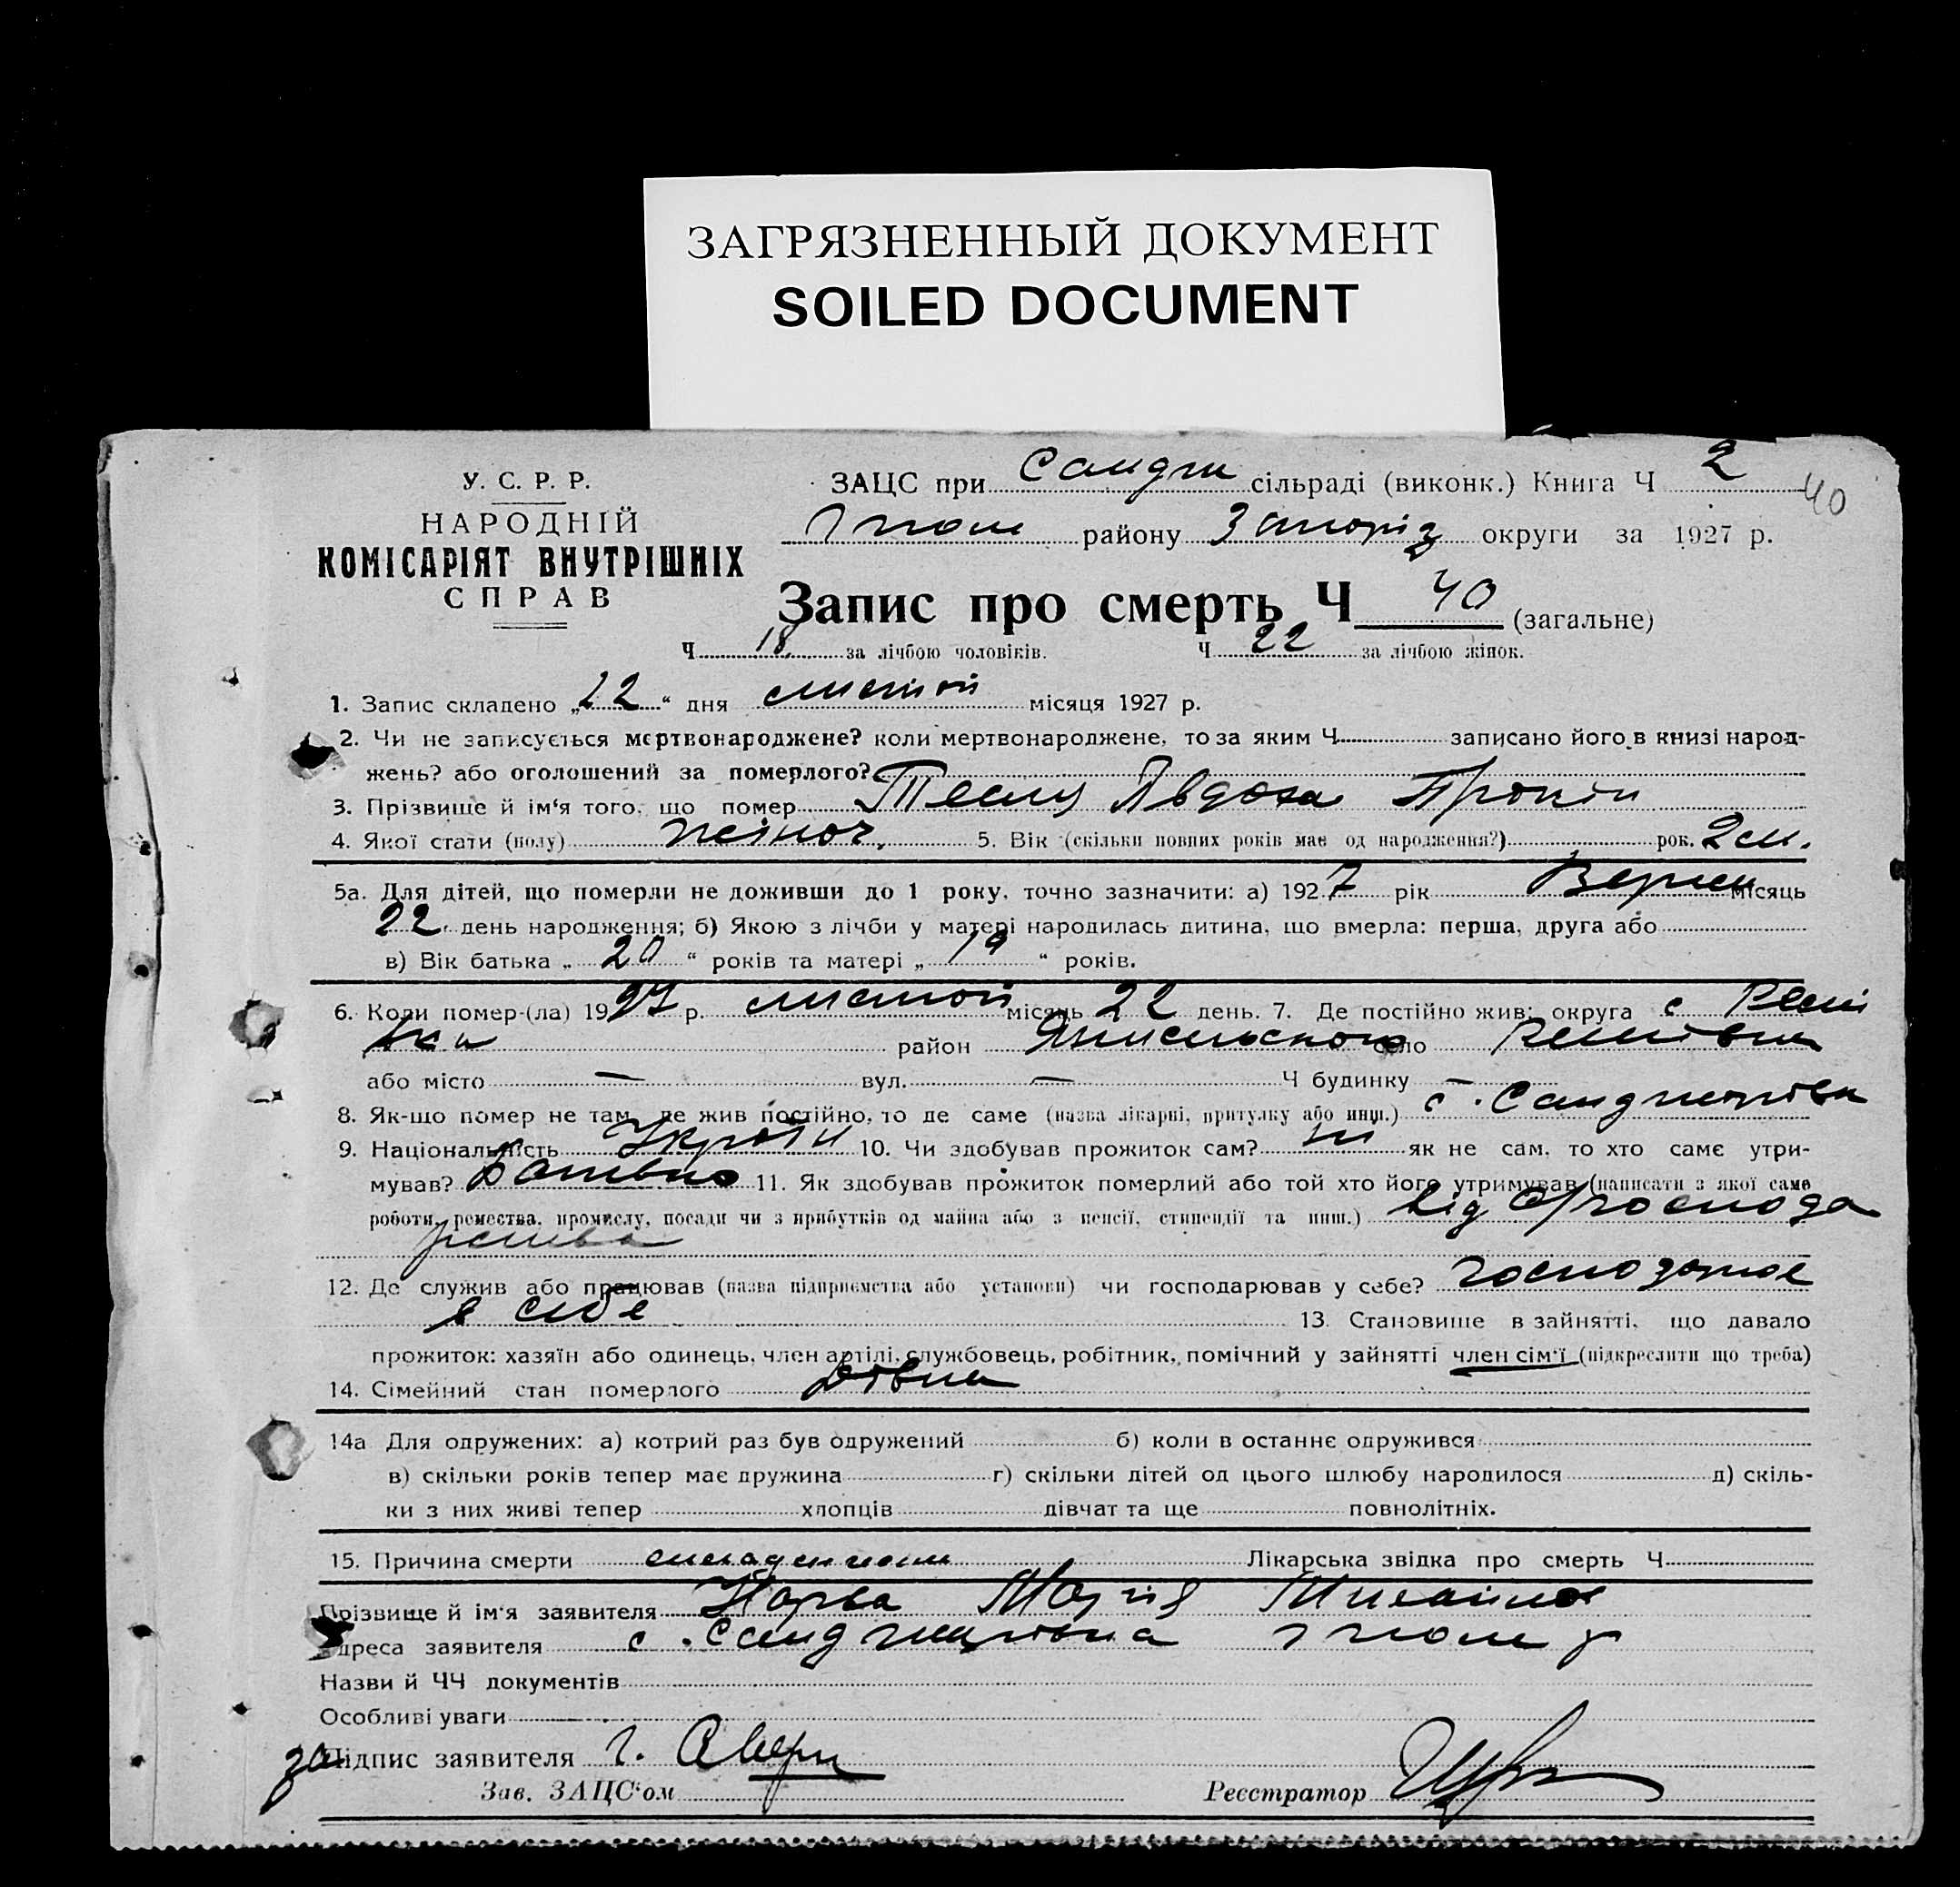 ЗАГРЯЗНЕННЫЙ ДОКУМЕНТ
SOILED DOCUMENT
У. С. Р. Р.
НАРОДНІЙ
КОМІСАРІЯТ ВНУТРІШНІХ
СПРАВ
ЗАЦС при Санджи сільраді (виконк.) Книга Ч 2
40
району Запоріз округи за 1927 р.
Запис про смерть Ч 40 (загальне)
Ч 18 за лічбою чоловіків. Ч 22 за лічбою жінок.
1. Запис складено „22“ дня листоп місяця 1927 р.
2. Чи не записується мертвонароджене? коли мертвонароджене, то за яким Ч записано його в книзі народ-
жень? або оголошений за померлого?
3. Прізвище й ім'я того, що помер Явдоха Прокоп
4. Якої стати (полу) жіноч. 5. Вік (скільки повних років має од народження?) рок. 2 м.
5а. Для дітей, що померли не доживши до 1 року, точно зазначити: а) 1927 рік Верес місяць
22 день народження; б) Якою з лічби у матері народилась дитина, що вмерла: перша, друга або
в) Вік батька „20“ років та матері „19“ років.
6. Коли помер-(ла) 1927 р. листоп місяць 22 день. 7. Де постійно жив: округа с
район село
або місто — вул. — Ч будинку —
8. Як-що помер не там, де жив постійно, то де саме (назва лікарні, притулку або инш.) с.
9. Національність Україн 10. Чи здобував прожиток сам? ні як не сам, то хто саме утри-
мував? Батько 11. Як здобував прожиток померлий або той хто його утримував (написати з якої саме
роботи, ремества, промислу, посади чи з прибутків од майна або з пенсії, стипендії та инш.) від господа
рства
12. Де служив або працював (назва підприємства або установи) чи господарював у себе?
в себе 13. Становище в зайнятті, що давало
прожиток: хазяїн або одинець, член артілі, службовець, робітник, помічний у зайнятті член сім'ї (підкреслити що треба)
14. Сімейний стан померлого Дівка
14а Для одружених: а) котрий раз був одружений б) коли в останнє одружився
в) скільки років тепер має дружина г) скільки дітей од цього шлюбу народилося д) скіль-
ки з них живі тепер хлопців дівчат та ще повнолітніх.
15. Причина смерти Лікарська звідка про смерть Ч
Прізвище й ім'я заявителя Марія
Адреса заявителя с.
Назви й ЧЧ документів
Особливі уваги
за Підпис заявителя
Зав. ЗАЦС‘ом Реєстратор